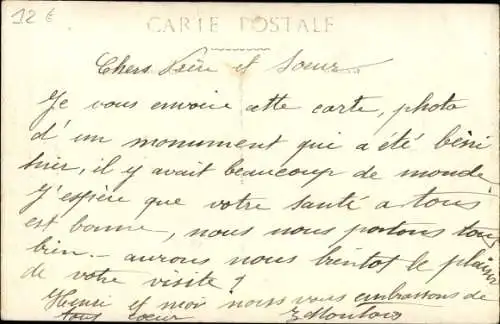 12 €
CARTE POSTALE
Chers Père et Soeur...
Je vous envoie cette carte, photo
d'un monument qui a été béni
hier, il y avait beaucoup de monde.
J'espère que votre santé a tous
est bonne, nous nous portons tous
bien. - aurons nous bientot le plaisir
de votre visite ?
Henri et moi nous vous embrassons de
tous coeur